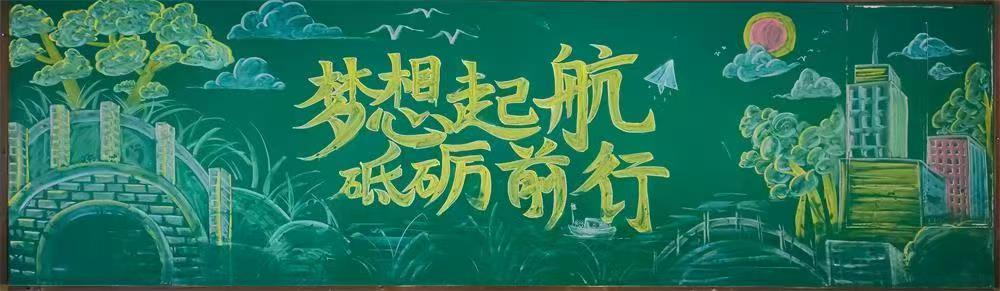 梦想起航
砥砺前行